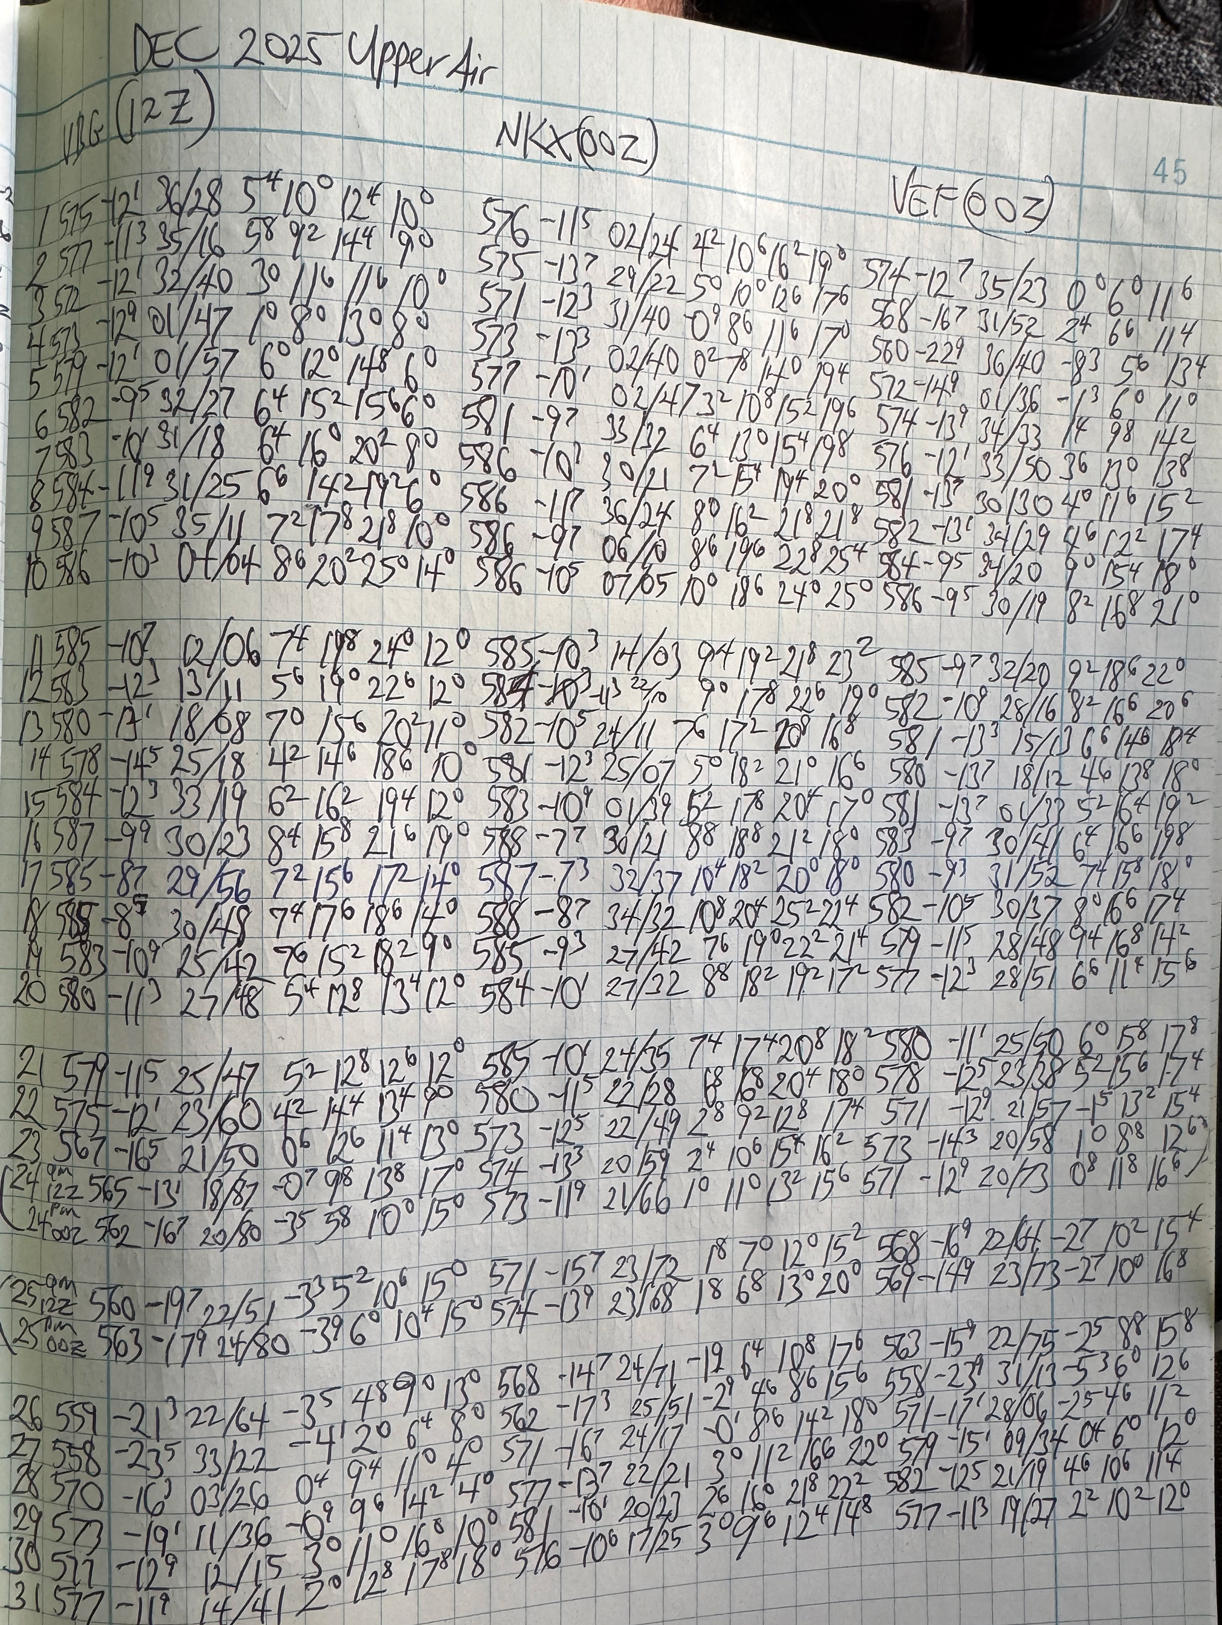 DEC 2025 Upper Air
VBG (12Z) NKX (00Z) VEF (00Z)
45
1 575 -12¹ 36/28 5⁴ 10⁰ 12⁴ 10⁰ 576 -11⁵ 02/24 4² 10⁶ 16² 19⁰ 574 -12⁷ 35/23 0⁰ 6⁰ 11⁶
2 577 -11³ 35/16 5⁸ 9² 14⁴ 9⁰ 575 -13⁷ 29/22 5⁰ 10⁰ 12⁶ 17⁶ 568 -16⁷ 31/52 2⁴ 6⁶ 11⁴
3 572 -12¹ 32/40 3⁰ 11⁶ 11⁶ 10⁰ 571 -12³ 31/40 -0⁹ 8⁶ 11⁶ 17⁰ 560 -22⁹ 36/40 -8³ 5⁶ 13⁴
4 573 -12⁹ 01/47 1⁰ 8⁰ 13⁰ 8⁰ 573 -13³ 02/40 0² 7⁸ 14⁰ 19⁴ 572 -14⁹ 01/36 -1³ 6⁰ 11⁰
5 579 -12¹ 01/57 6⁰ 12⁰ 14⁸ 6⁰ 577 -10¹ 02/47 3² 10⁸ 15² 19⁶ 574 -13⁹ 34/33 1⁴ 9⁸ 14²
6 582 -9⁵ 32/27 6⁴ 15² 15⁶ 6⁰ 581 -9⁷ 33/32 6⁴ 13⁰ 15⁴ 19⁸ 576 -12¹ 33/50 3⁶ 13⁰ 13⁸
7 583 -10¹ 31/18 6⁴ 16⁰ 20² 8⁰ 586 -10³ 30/21 7² 15⁴ 19⁴ 20⁰ 581 -13⁷ 30/30 4⁰ 11⁶ 15²
8 584 -11⁹ 31/25 6⁶ 14² 19² 6⁰ 586 -11⁷ 36/24 8⁰ 16² 21⁸ 21⁸ 582 -13¹ 34/29 4⁶ 12² 17⁴
9 587 -10⁵ 35/11 7² 17⁸ 21⁸ 10⁰ 586 -9⁷ 06/10 8⁶ 19⁶ 22⁸ 25⁴ 584 -9⁵ 34/20 9⁰ 15⁴ 18⁰
10 586 -10³ 04/04 8⁶ 20² 25⁰ 14⁰ 586 -10⁵ 07/05 10⁰ 18⁶ 24⁰ 25⁰ 586 -9⁵ 30/19 8² 16⁸ 21⁰
11 585 -10⁷ 12/06 7⁴ 19⁸ 24⁰ 12⁰ 585 -10³ 14/03 9⁴ 19² 21⁸ 23² 585 -9⁷ 32/20 9² 18⁶ 22⁰
12 583 -12³ 13/11 5⁶ 19⁰ 22⁶ 12⁰ -11³ 22/10 9⁰ 17⁸ 22⁶ 19⁰ 582 -10⁹ 28/16 8² 16⁶ 20⁶
13 580 -13¹ 18/08 7⁰ 15⁶ 20² 11⁰ 582 -10⁵ 24/11 7⁶ 17² 20⁸ 16⁸ 581 -13³ 15/13 6⁶ 14⁶ 18⁴
14 578 -14⁵ 25/18 4² 14⁶ 18⁶ 10⁰ 581 -12³ 25/07 5⁰ 18² 21⁰ 16⁶ 580 -13⁷ 18/12 4⁶ 13⁸ 18⁰
15 584 -12³ 33/19 6² 16² 19⁴ 12⁰ 583 -10⁹ 01/39 5² 17⁸ 20⁴ 17⁰ 581 -13⁷ 01/33 5² 16⁴ 19²
16 587 -9⁹ 30/23 8⁴ 15⁸ 21⁶ 19⁰ 588 -7⁷ 30/21 8⁸ 18⁸ 21² 18⁰ 583 -9⁷ 30/41 6⁴ 16⁶ 19⁸
17 585 -8⁷ 29/56 7² 15⁶ 17² 14⁰ 587 -7³ 32/37 10⁴ 18² 20⁰ 18⁰ 580 -9³ 31/52 7⁴ 15⁸ 18⁰
18 585 -8⁵ 30/48 7⁴ 17⁶ 18⁶ 14⁰ 588 -8⁷ 34/32 10⁸ 20⁴ 25² 22⁴ 582 -10⁵ 30/37 8⁰ 16⁶ 17⁴
19 583 -10⁹ 25/42 7⁶ 15² 18² 9⁰ 585 -9³ 27/42 7⁶ 19⁰ 22² 21⁴ 579 -11⁵ 28/48 9⁴ 16⁸ 14²
20 580 -11³ 27/48 5⁴ 12⁸ 13⁴ 12⁰ 584 -10¹ 27/32 8⁸ 18² 19² 17² 577 -12³ 28/51 6⁶ 11⁴ 15⁶
21 579 -11⁵ 25/47 5² 12⁸ 12⁶ 12⁰ 585 -10¹ 24/35 7⁴ 17⁴ 20⁸ 18² 580 -11¹ 25/50 6⁰ 15⁸ 17⁸
22 575 -12¹ 23/60 4² 14⁴ 13⁴ 9⁰ 580 -11⁵ 22/28 16⁸ 20⁴ 18⁰ 578 -12⁵ 23/38 5² 15⁶ 17⁴
23 567 -16⁵ 21/50 0⁶ 12⁶ 11⁴ 13⁰ 573 -12⁵ 22/49 2⁸ 9² 12⁸ 17⁴ 571 -12⁹ 21/57 -1⁵ 13² 15⁴
24 am 12Z 565 -13¹ 18/87 -0⁷ 9⁸ 13⁸ 17⁰ 574 -13³ 20/59 2⁴ 10⁶ 15⁴ 16² 573 -14³ 20/58 1⁰ 8⁸ 12⁶
24 pm 00Z 562 -16⁷ 20/80 -3⁵ 5⁸ 10⁰ 15⁰ 573 -11⁹ 21/66 1⁰ 11⁰ 13² 15⁶ 571 -12⁹ 20/73 0⁸ 11⁸ 16⁶
25 am 12Z 560 -19⁷ 22/51 -3³ 5² 10⁶ 15⁰ 571 -15⁷ 23/72 1⁸ 7⁰ 12⁰ 15² 568 -16⁹ 22/64 -2⁷ 10² 15⁴
25 pm 00Z 563 -17⁹ 24/80 -3⁹ 6⁰ 10⁴ 15⁰ 574 -13⁹ 23/68 1⁸ 6⁸ 13⁰ 20⁰ 569 -14⁹ 23/73 -2⁷ 10⁰ 16⁸
26 559 -21³ 22/64 -3⁵ 4⁸ 9⁰ 13⁰ 568 -14⁷ 24/71 -1⁹ 6⁴ 10⁸ 17⁶ 563 -15⁹ 22/75 -2⁵ 8⁸ 15⁸
27 558 -23⁵ 33/22 -4¹ 2⁰ 6⁴ 8⁰ 562 -17³ 25/51 -2⁹ 4⁶ 8⁶ 15⁶ 558 -23⁹ 31/13 -5³ 6⁰ 12⁶
28 570 -16³ 03/26 0⁴ 9⁴ 11⁰ 4⁰ 571 -16⁷ 24/17 -0¹ 8⁶ 14² 18⁰ 571 -17¹ 28/06 -2⁵ 4⁶ 11²
29 573 -19¹ 11/36 -0⁹ 9⁶ 14² 4⁰ 577 -13⁷ 22/21 3⁰ 11² 16⁶ 22⁰ 579 -15¹ 09/34 0⁴ 6⁰ 12⁰
30 577 -12⁹ 12/15 3⁰ 11⁰ 16⁰ 10⁰ 581 -10¹ 20/23 2⁶ 16⁰ 21⁸ 22² 582 -12⁵ 21/19 4⁶ 10⁶ 11⁴
31 577 -11⁹ 14/41 2⁰ 12⁸ 17⁸ 18⁰ 576 -10⁶ 17/25 3⁰ 9⁶ 12⁴ 14⁸ 577 -11³ 19/27 2² 10² 12⁰